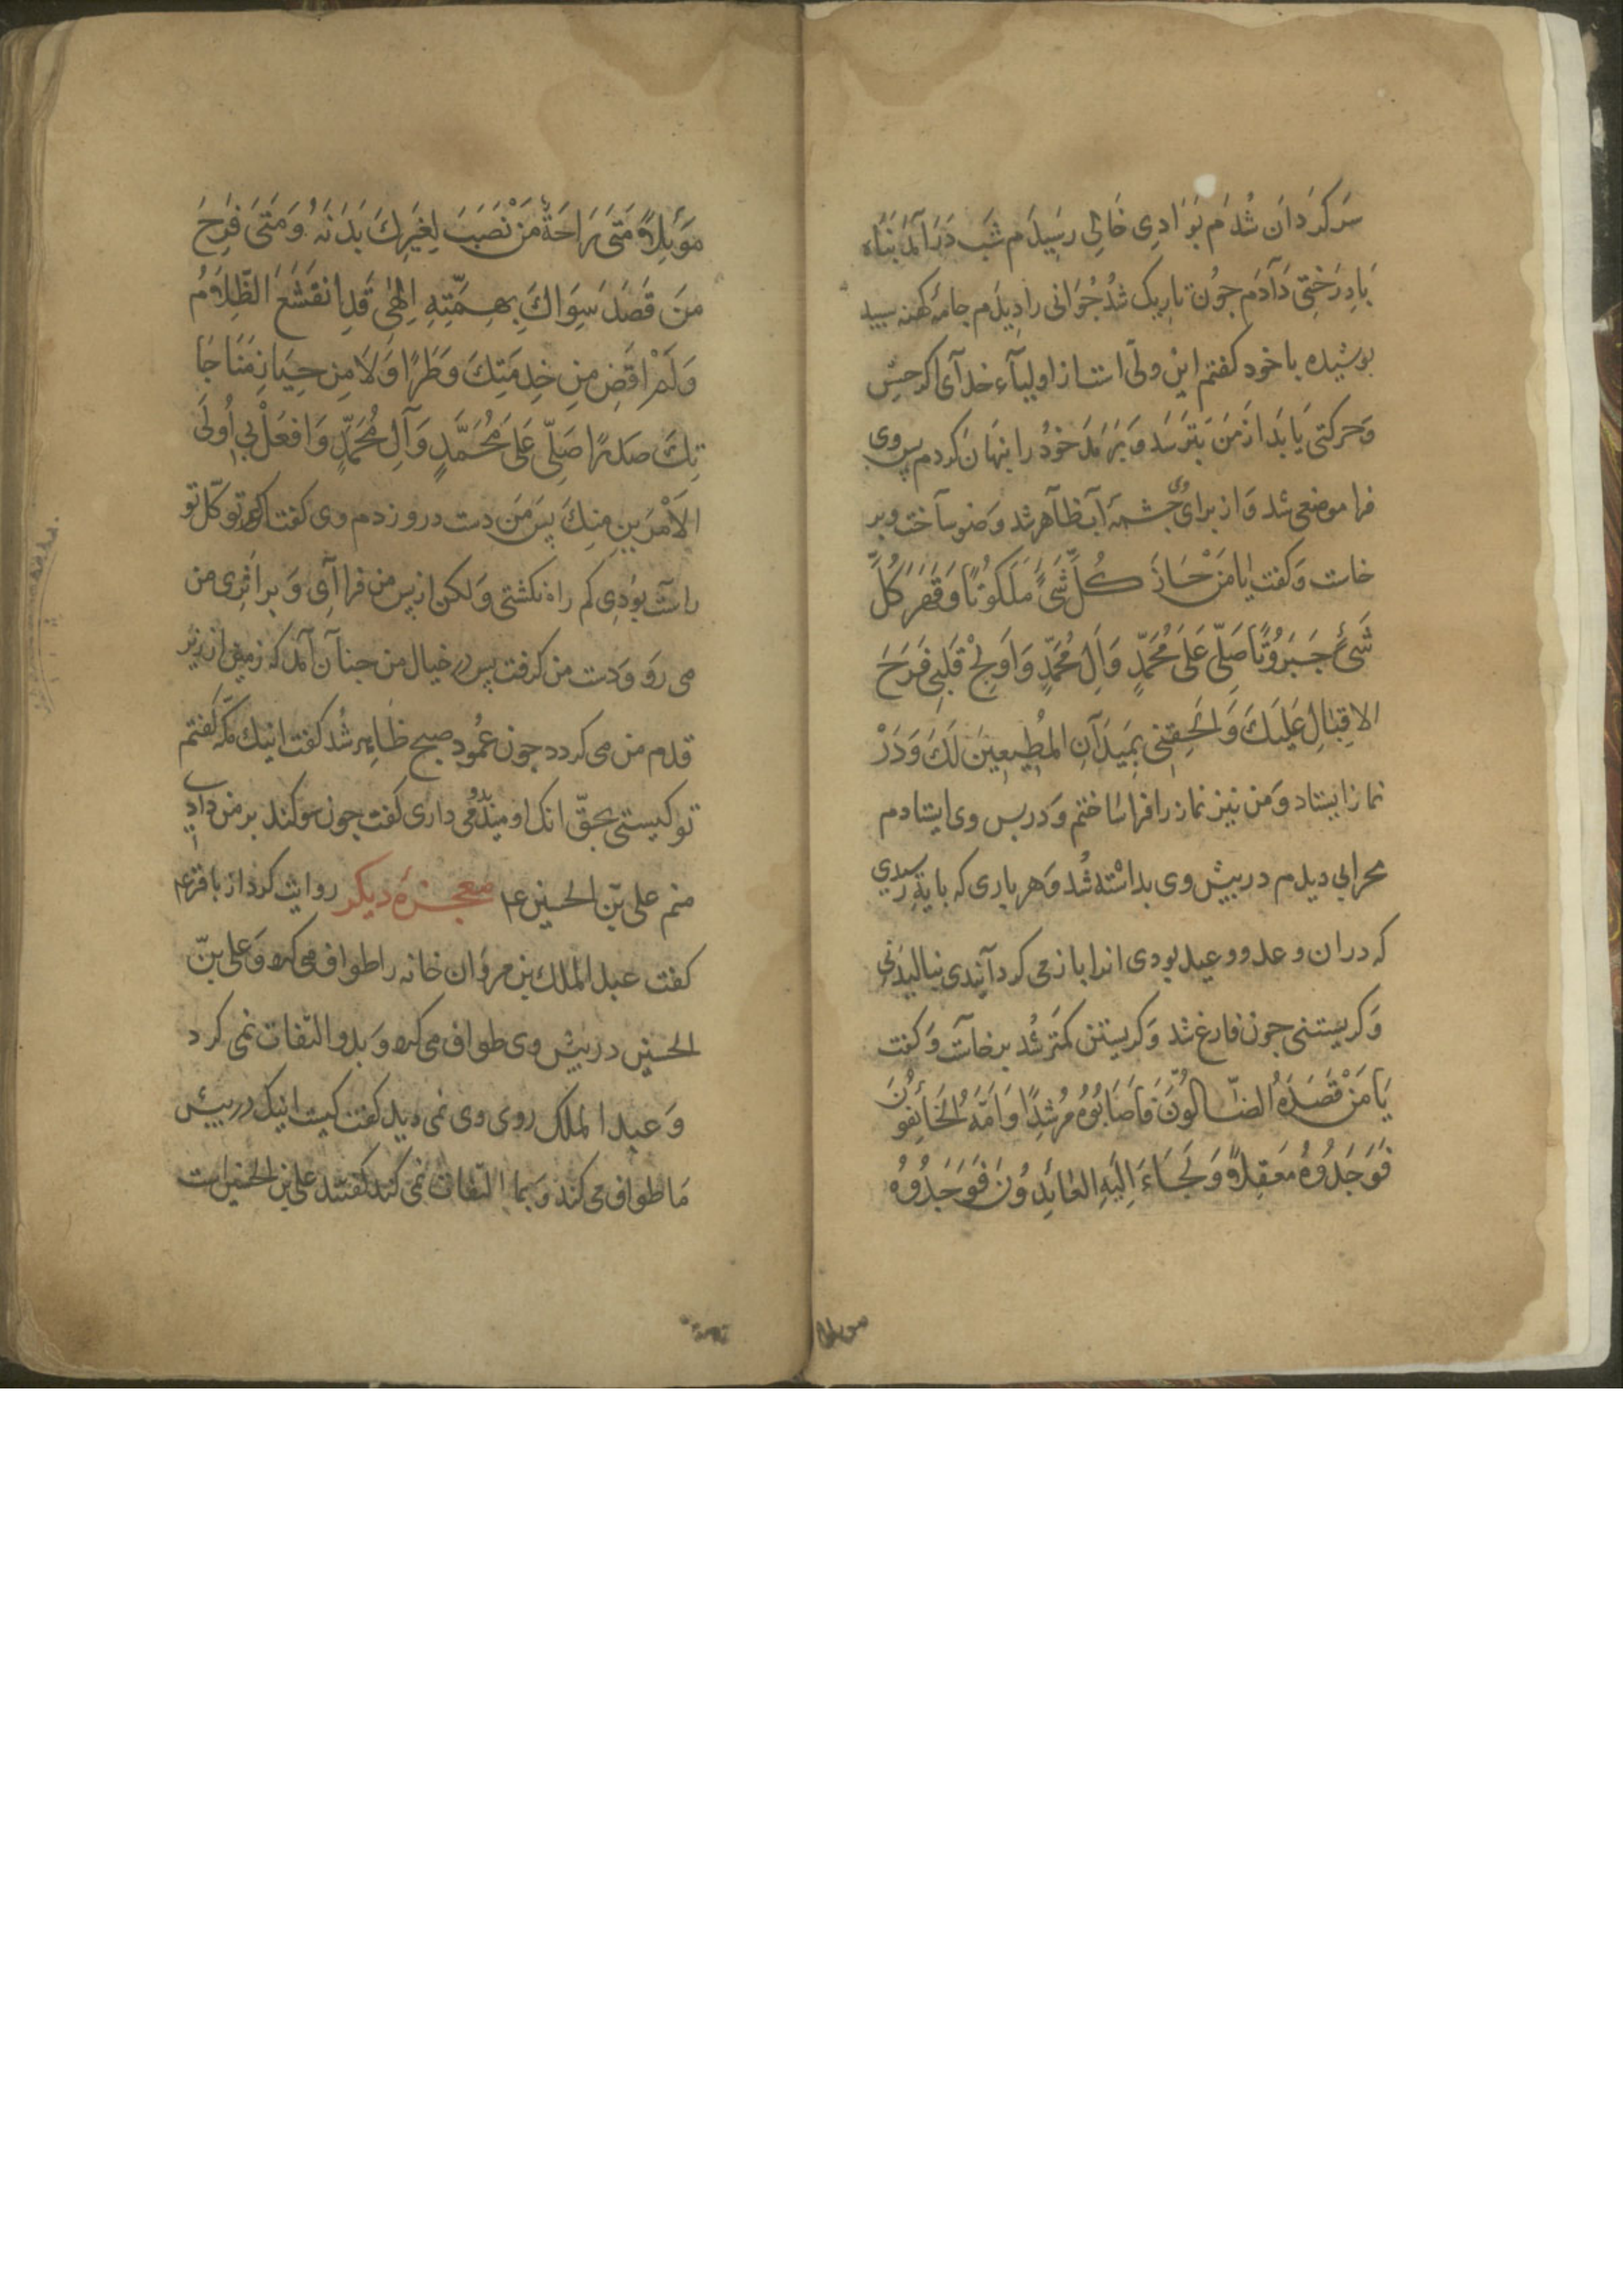 سَرکَردَان شُدَم بَوَادِی خَالِی رسِیدَم شَب دَرآمَد بَنَاه
بَادِرَخِتی دَآدَم جُون تاریک شُد جُوَانی رادِیدَم جامهٔ کهنه سبید
بوشیده باخود کفتم این ولّی استـ از اولیآء خدآی اکر حسِّ
وَحرکتی یَابَد ازمَن بتَرسَد وَبَرمَد خودُ را بنهَان کردم پس وی
فرا موضعی شد وَاز برای وی جشمهٔ آب ظآهر شد وَضو ساخت وبر
خاست وَکفت یامَنْ حَـازَ کُلَّ شَیً مَلَکوُتًا وَقَهَرَ کُلَّ
شَیْءٍ جَبَرُوتًا صَلِّی عَلَی مُحَمَّدٍ وَآلِ مُحَمَّدٍ وَاَوْلِجْ قَلْبِی فَرَحَ
الاِقبَالِ عَلَیکَ وَالحِقنِی بِمَیدَآنِ المُطِیعِینَ لَکَ وَدَرْ
نماز ایستاد وَمن نیز نماز را فراسَاختم وَدربس وی ایستادم
محرابی دیدم دربیش وی بداشْته شُد وَهرباری که بایة رسیدی
که دران وعد و وعید بودی انرا باز می کردآنیدی بنالیدنی
وَکریستنی جون فارغ شد وَکریستن کمتر شُد برخاست وَکفت
یَامَنْ قَصَدَهُ الضّالُّونَ فَاَصَابُوُهُ مُرْشِدًا وَاَمَّهُ الخَائِفوُنَ
فَوَجَدُوُهُ مَعقِلًا وَلَجَاءَ اِلَیهِ العَائِدوُنَ فَوَجَدُوُهُ
موبلا
مَوْئِلاً مَتَی رَاحَةُ مَنْ نَصَبَ لِغَیرِكَ بَدَنَهُ وَمَتَی فَرِحَ
مَنَ قَصَدَ سِوَاكَ بِهِمَّتِهِ اِلٰهِی قَدِ انقَشَعَ الظِّلَامُ
وَلَمْ اَقضِ مِنِ خِدمَتِكَ وَطَرًا وَلَا مِن حِیَاضِ مُنَاجَا
تِكَ صَدرًا صَلِّی عَلَی مُحَمَّدٍ وَآلِ مُحَمَّدٍ وَافعَلْ بِی اُولَی
الاَمْرَینِ مِنِكَ پس من دست در وزدم وی کفت اکر توکّل تو
راست بوُدِی کم راه نکشتی وَلکن از پس من فراآی وَبر اثرِی من
می رَوَ وَدست من کرفت پس در خیال من جنآن آمد که زمین از زیر
قدم من می کردد جون عمُود صبح ظاهر شُد کفت اینك مَکّه کفتم
تو کیستی بحقّ انك اومید بدو می داری کفت جون سوکند بر من دادی
منم علی بنّ الحسین ع معجزهٔ دیکر روایت کرد از باقر ع
کفت عبد الملك بن مروان خانه را طواف می کرد وَعلی بنّ
الحسین دربیش وی طواف می کرد وَبدو التفات نمی کرد
وَعبد الملک روی وی نمی دید کفت کیست اینک دربیش
مَا طواف می کند وَبما التفات نمی کند کفتند علی بن الحسین است